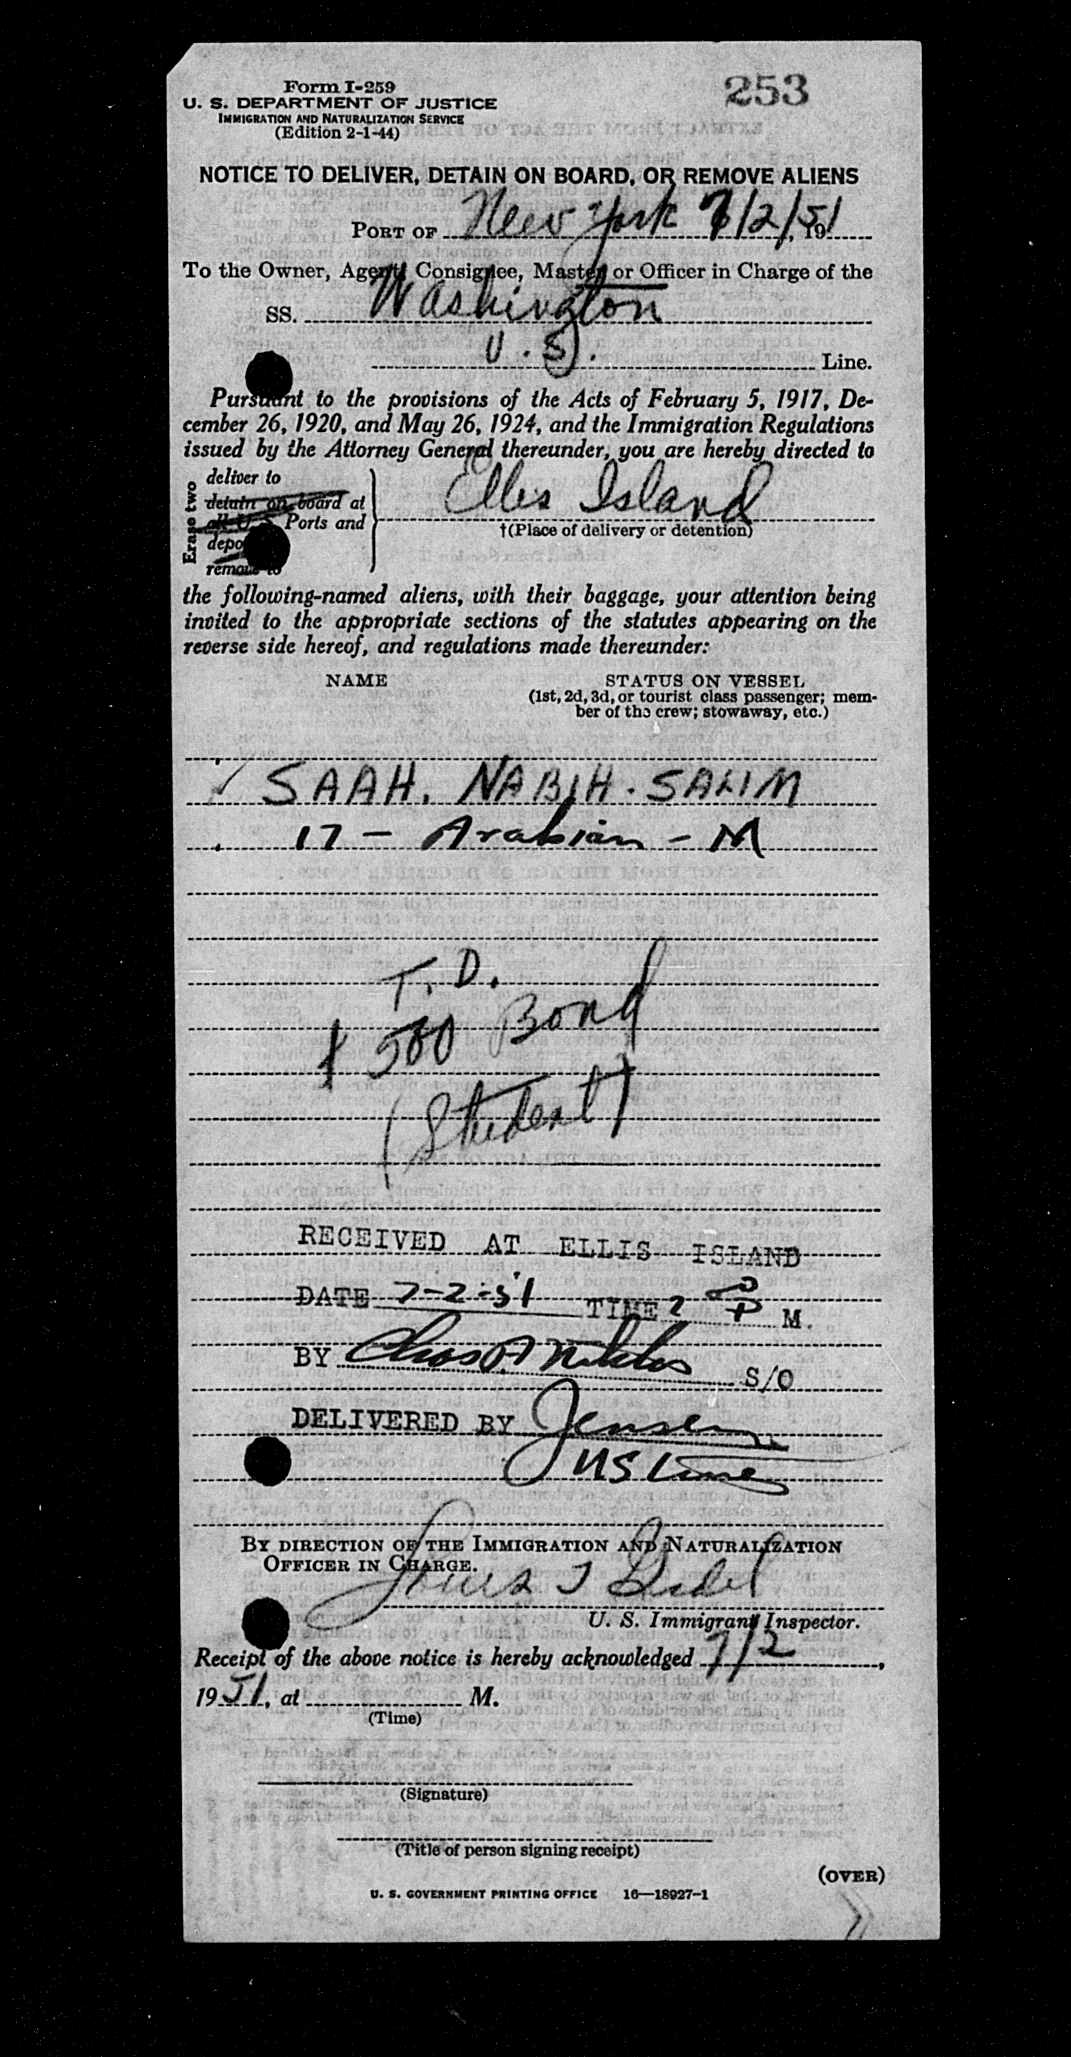 253
Form I-259
U. S. DEPARTMENT OF JUSTICE
IMMIGRATION AND NATURALIZATION SERVICE
(Edition 2-1-44)
NOTICE TO DELIVER, DETAIN ON BOARD, OR REMOVE ALIENS
PORT OF New York 7/2/51, 19
To the Owner, Agent, Consignee, Master or Officer in Charge of the
SS. Washington
U.S. Line.
Pursuant to the provisions of the Acts of February 5, 1917, De-
cember 26, 1920, and May 26, 1924, and the Immigration Regulations
issued by the Attorney General thereunder, you are hereby directed to
Erase two
deliver to
detain on board at
all U. S. Ports and
depo
remove to
Ellis Island
†(Place of delivery or detention)
the following-named aliens, with their baggage, your attention being
invited to the appropriate sections of the statutes appearing on the
reverse side hereof, and regulations made thereunder:
NAME STATUS ON VESSEL
(1st, 2d, 3d, or tourist class passenger; mem-
ber of the crew; stowaway, etc.)
✓ SAAH. NABIH. SALIM
17 - Arabian - M
T. D.
$ 500 Bond
(Student)
RECEIVED AT ELLIS ISLAND
DATE 7-2-51 TIME 2 P M.
BY Chas A S/O
DELIVERED BY Jensen
US Lines
BY DIRECTION OF THE IMMIGRATION AND NATURALIZATION
OFFICER IN CHARGE.
U. S. Immigrant Inspector.
Receipt of the above notice is hereby acknowledged 7/2,
1951, at M.
(Time)
(Signature)
(Title of person signing receipt)
(OVER)
U. S. GOVERNMENT PRINTING OFFICE 16—18927-1